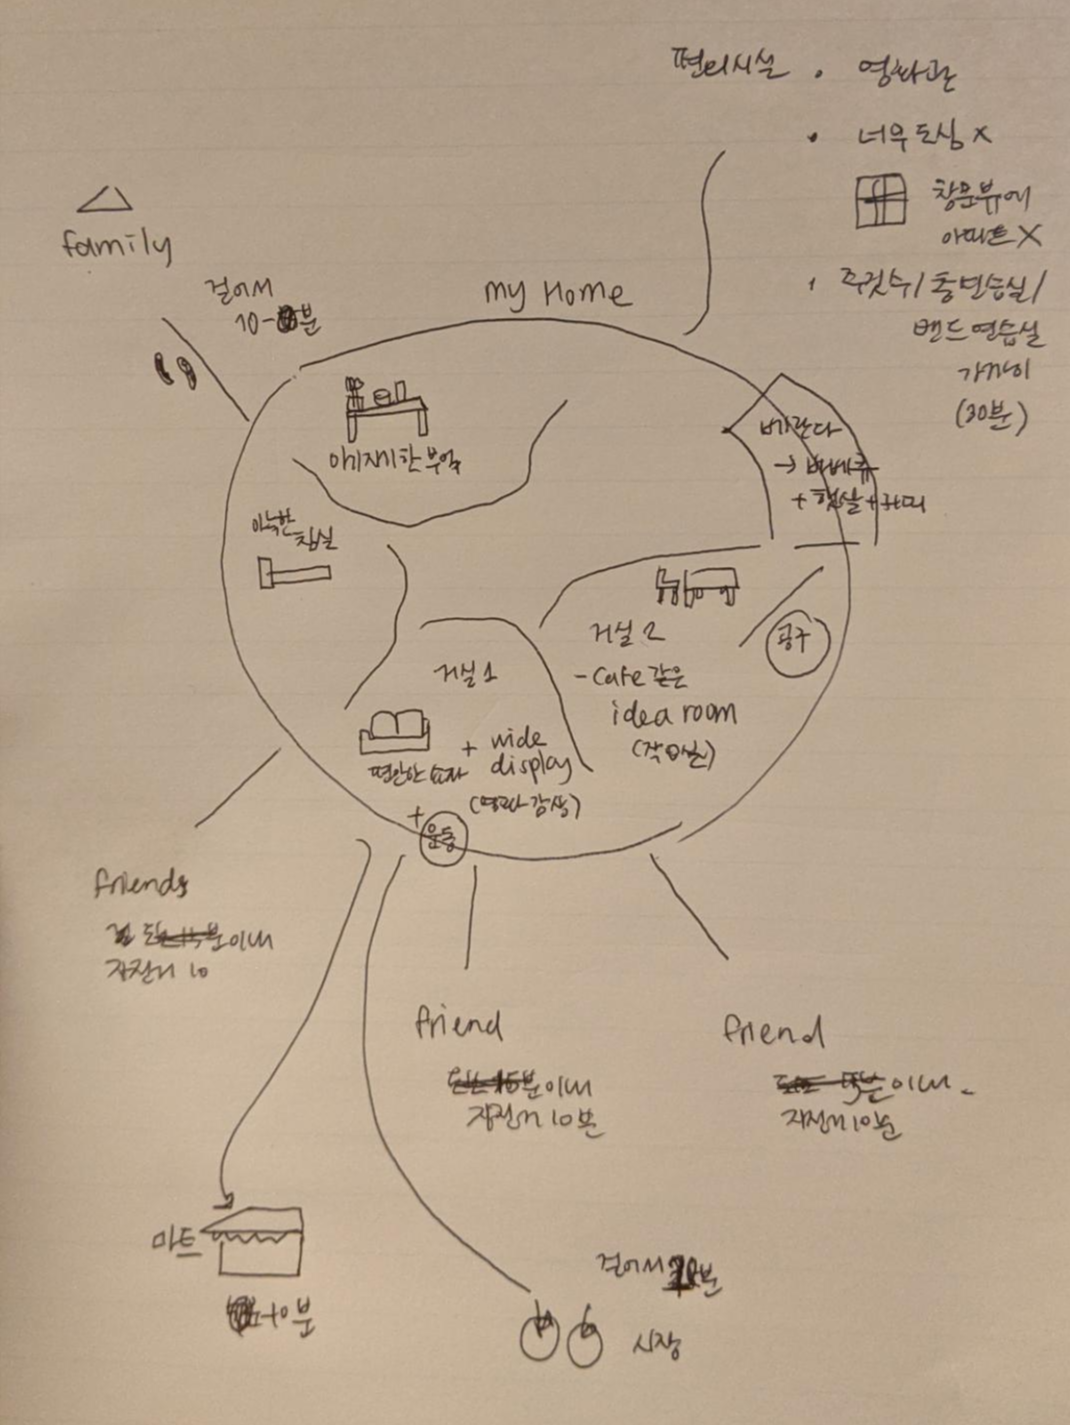 편의시설 · 영화관
· 너무 도심 X
창문뷰에
아파트 X
· 주짓수/춤연습실/
밴드연습실
가까이
(30분)
family
걸어서
10-분
my Home
아기자기한 부엌
아늑한
침실
베란다
→ 바베큐
+ 햇살 + 커피
거실 2
- cafe 같은
idea room
(작업실)
공구
거실 1
편안한 쇼파
+ wide
display
(영화감상)
+ 운동
friends
이내
자전거 10
friend
이내
자전거 10분
friend
이내
자전거 10분
마트
10분
걸어서
시장